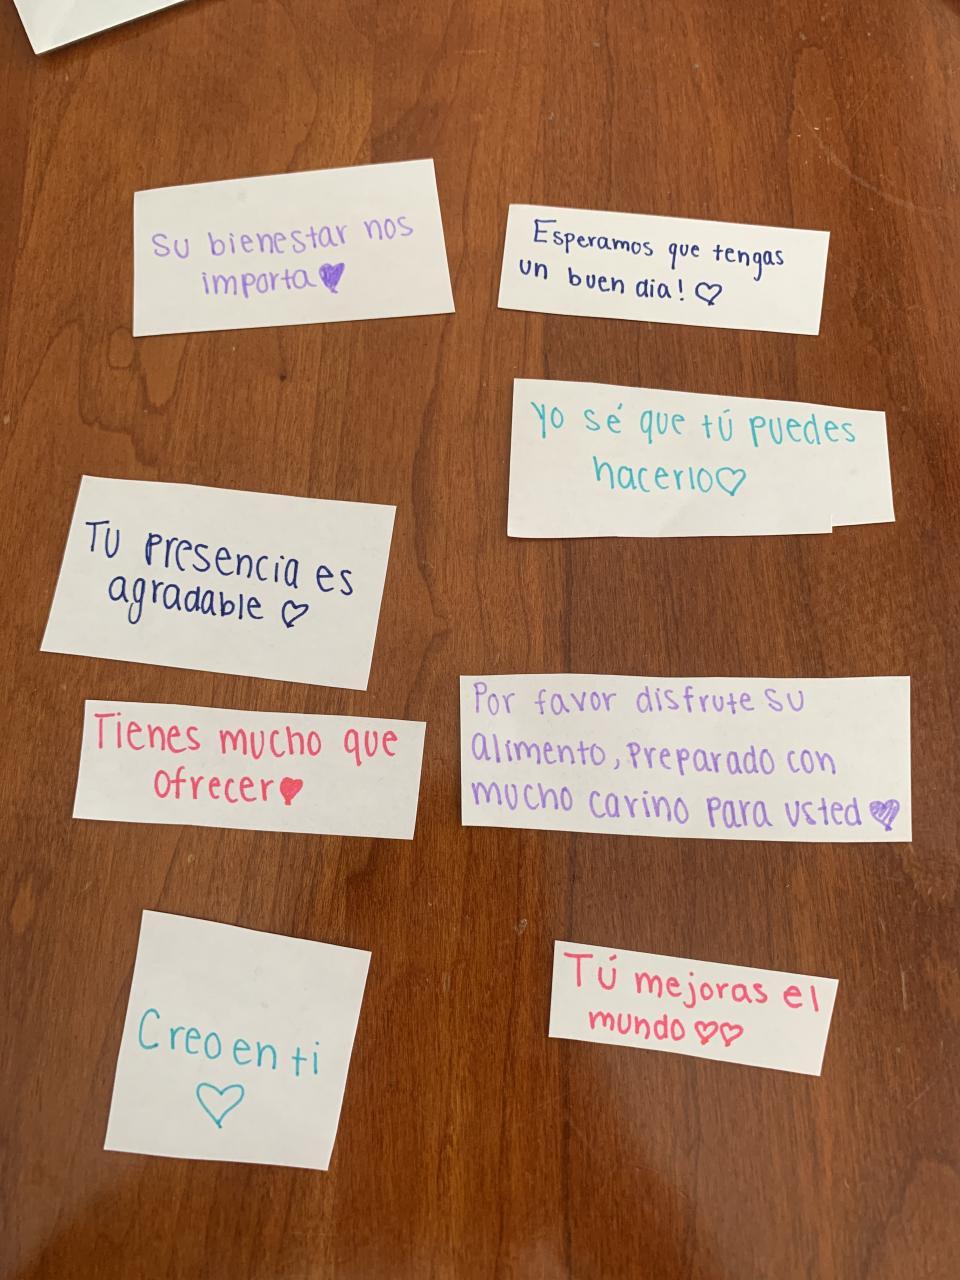 Su bienestar nos
importa♥
Esperamos que tengas
un buen dia! ♡
Yo sé que tú puedes
hacerlo♡
Tu presencia es
agradable ♡
Tienes mucho que
ofrecer♥
Por favor disfrute su
alimento, preparado con
mucho carino para usted♥
Creo en ti
♡
Tú mejoras el
mundo♡♡